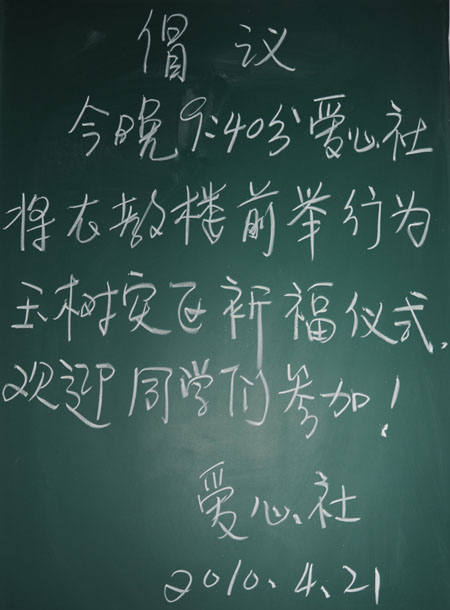 倡议
今晚9:40分爱心社
将在教楼前举行为
玉树灾区祈福仪式,
欢迎同学们参加!
爱心社
2010.4.21